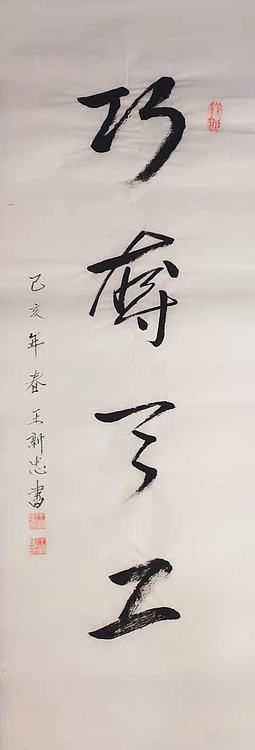 巧夺天工
己亥年春王新忠書